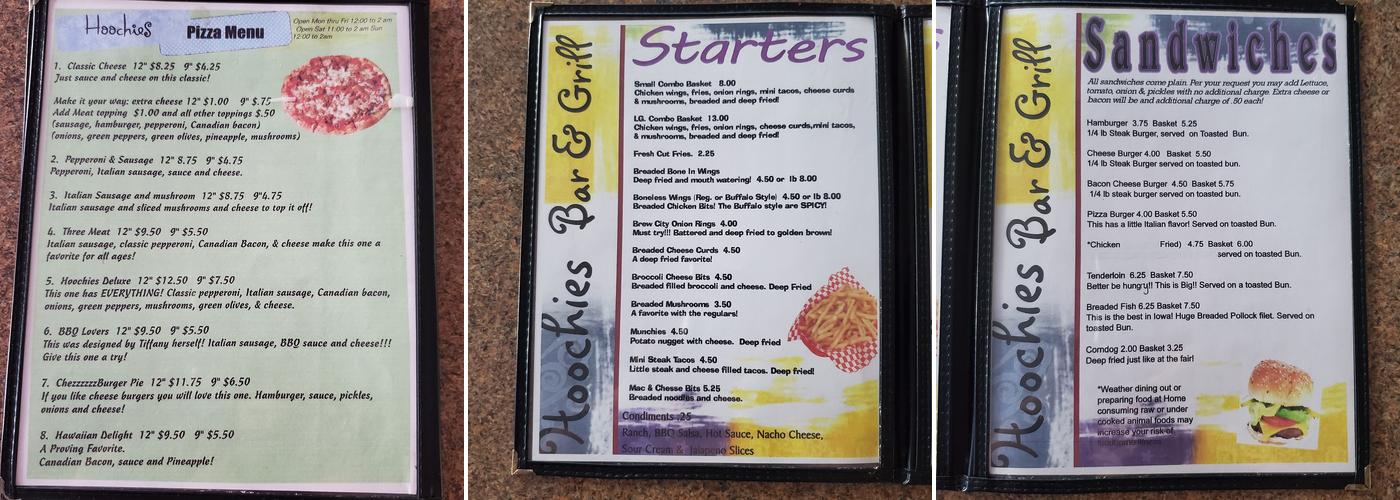 Hoochies
Pizza Menu
Open Mon thru Fri 12:00 to 2 am
Open Sat 11:00 to 2 am Sun
12:00 to 2am
1. Classic Cheese 12" $8.25 9" $6.25
Just sauce and cheese on this classic!
Make it your way: extra cheese 12" $1.00 9" $.75
Add Meat topping $1.00 and all other toppings $.50
(sausage, hamburger, pepperoni, Canadian bacon)
(onions, green peppers, green olives, pineapple, mushrooms)
2. Pepperoni & Sausage 12" 8.75 9" $4.75
Pepperoni, Italian sausage, sauce and cheese.
3. Italian Sausage and mushroom 12" $8.75 9"4.75
Italian sausage and sliced mushrooms and cheese to top it off!
4. Three Meat 12" $9.50 9" $5.50
Italian sausage, classic pepperoni, Canadian Bacon, & cheese make this one a
favorite for all ages!
5. Hoochies Deluxe 12" $12.50 9" $7.50
This one has EVERYTHING! Classic pepperoni, Italian sausage, Canadian bacon,
onions, green peppers, mushrooms, green olives, & cheese.
6. BBQ Lovers 12" $9.50 9" $5.50
This was designed by Tiffany herself! Italian sausage, BBQ sauce and cheese!!!
Give this one a try!
7. ChezzzzzzBurger Pie 12" $11.75 9" $6.50
If you like cheese burgers you will love this one. Hamburger, sauce, pickles,
onions and cheese!
8. Hawaiian Delight 12" $9.50 9" $5.50
A Proving Favorite.
Canadian Bacon, sauce and Pineapple!
Hoochies Bar & Grill
Starters
Small Combo Basket 8.00
Chicken wings, fries, onion rings, mini tacos, cheese curds
& mushrooms, breaded and deep fried!
LG. Combo Basket 13.00
Chicken wings, fries, onion rings, cheese curds,mini tacos,
& mushrooms, breaded and deep fried!
Fresh Cut Fries. 2.25
Breaded Bone In Wings
Deep fried and mouth watering! 4.50 or lb 8.00
Boneless Wings (Reg. or Buffalo Style) 4.50 or lb 8.00
Breaded Chicken Bits! The Buffalo style are SPICY!
Brew City Onion Rings 4.00
Must try!!! Battered and deep fried to golden brown!
Breaded Cheese Curds 4.50
A deep fried favorite!
Broccoli Cheese Bits 4.50
Breaded filled broccoli and cheese. Deep Fried
Breaded Mushrooms 3.50
A favorite with the regulars!
Munchies 4.50
Potato nugget with cheese. Deep Fried
Mini Steak Tacos 4.50
Little steak and cheese filled tacos. Deep fried!
Mac & Chesse Bits 5.25
Breaded noodles and cheese.
Condiments .25
Ranch, BBQ Salsa, Hot Sauce, Nacho Cheese,
Sour Cream & Jalapeno Slices
Hoochies Bar & Grill
Sandwiches
All sandwiches come plain. Per your request you may add Lettuce,
tomato, onion & pickles with no additional charge. Extra cheese or
bacon will be and additional charge of .50 each!
Hamburger 3.75 Basket 5.25
1/4 lb Steak Burger, served on Toasted Bun.
Cheese Burger 4.00 Basket 5.50
1/4 lb Steak Burger served on toasted bun.
Bacon Cheese Burger 4.50 Basket 5.75
1/4 lb steak burger served on toasted bun.
Pizza Burger 4.00 Basket 5.50
This has a little Italian flavor! Served on toasted Bun.
*Chicken Fried) 4.75 Basket 6.00
served on toasted Bun.
Tenderloin 6.25 Basket 7.50
Better be hungry!! This is Big!! Served on a toasted Bun.
Breaded Fish 6.25 Basket 7.50
This is the best in Iowa! Huge Breaded Pollock filet. Served on
toasted Bun.
Corndog 2.00 Basket 3.25
Deep fried just like at the fair!
*Weather dining out or
preparing food at Home
consuming raw or under
cooked animal foods may
increase your risk of